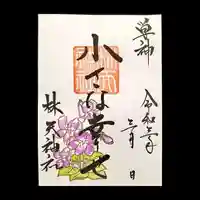 令和三年
三月 日
小さな幸せ
林天神社